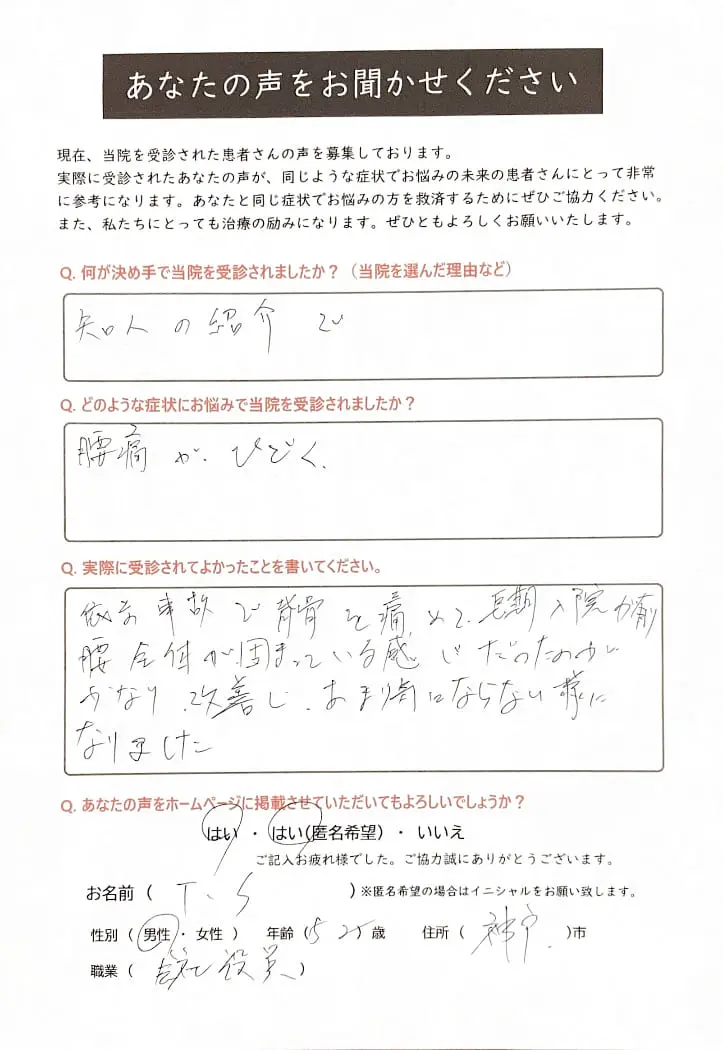 あなたの声をお聞かせください
現在、当院を受診された患者さんの声を募集しております。
実際に受診されたあなたの声が、同じような症状でお悩みの未来の患者さんにとって非常
に参考になります。あなたと同じ症状でお悩みの方を救済するためにぜひご協力ください。
また、私たちにとっても治療の励みになります。ぜひともよろしくお願いいたします。
Q. 何が決め手で当院を受診されましたか?(当院を選んだ理由など)
知人の紹介で
Q. どのような症状にお悩みで当院を受診されましたか?
腰痛がひどく、
Q. 実際に受診されてよかったことを書いてください。
事故で背骨を痛めて、長期入院が有
腰全体が固まっている感じだったのが
かなり改善し、あまり気にならない様に
なりました
Q. あなたの声をホームページに掲載させていただいてもよろしいでしょうか?
はい ・ はい(匿名希望) ・ いいえ
ご記入お疲れ様でした。ご協力誠にありがとうございます。
お名前 ( T.S ) ※匿名希望の場合はイニシャルをお願い致します。
性別 ( 男性 ・ 女性 ) 年齢 ( ) 歳 住所 ( 神戸 )市
職業 ( 会社役員 )